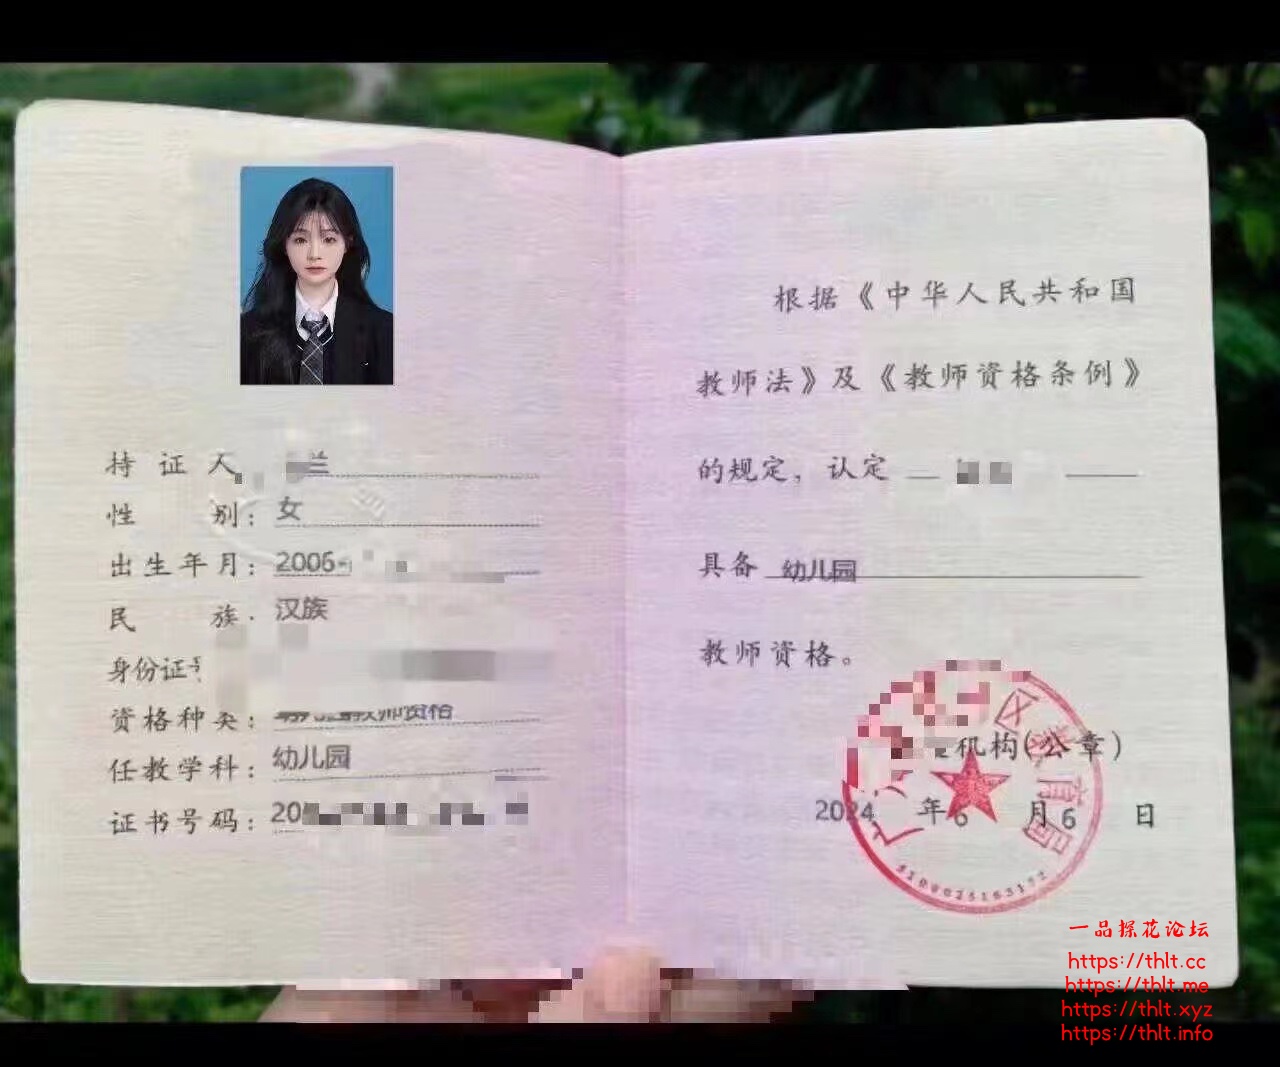 持证人 兰
性别：女
出生年月：2006
民族：汉族
身份证号
资格种类：教师资格
任教学科：幼儿园
证书号码：20
根据《中华人民共和国
教师法》及《教师资格条例》
的规定，认定
具备 幼儿园
教师资格。
机构(公章)
2024 年 6 月 6 日
区教育局
5109025163172
一品探花论坛
https://thlt.cc
https://thlt.me
https://thlt.xyz
https://thlt.info